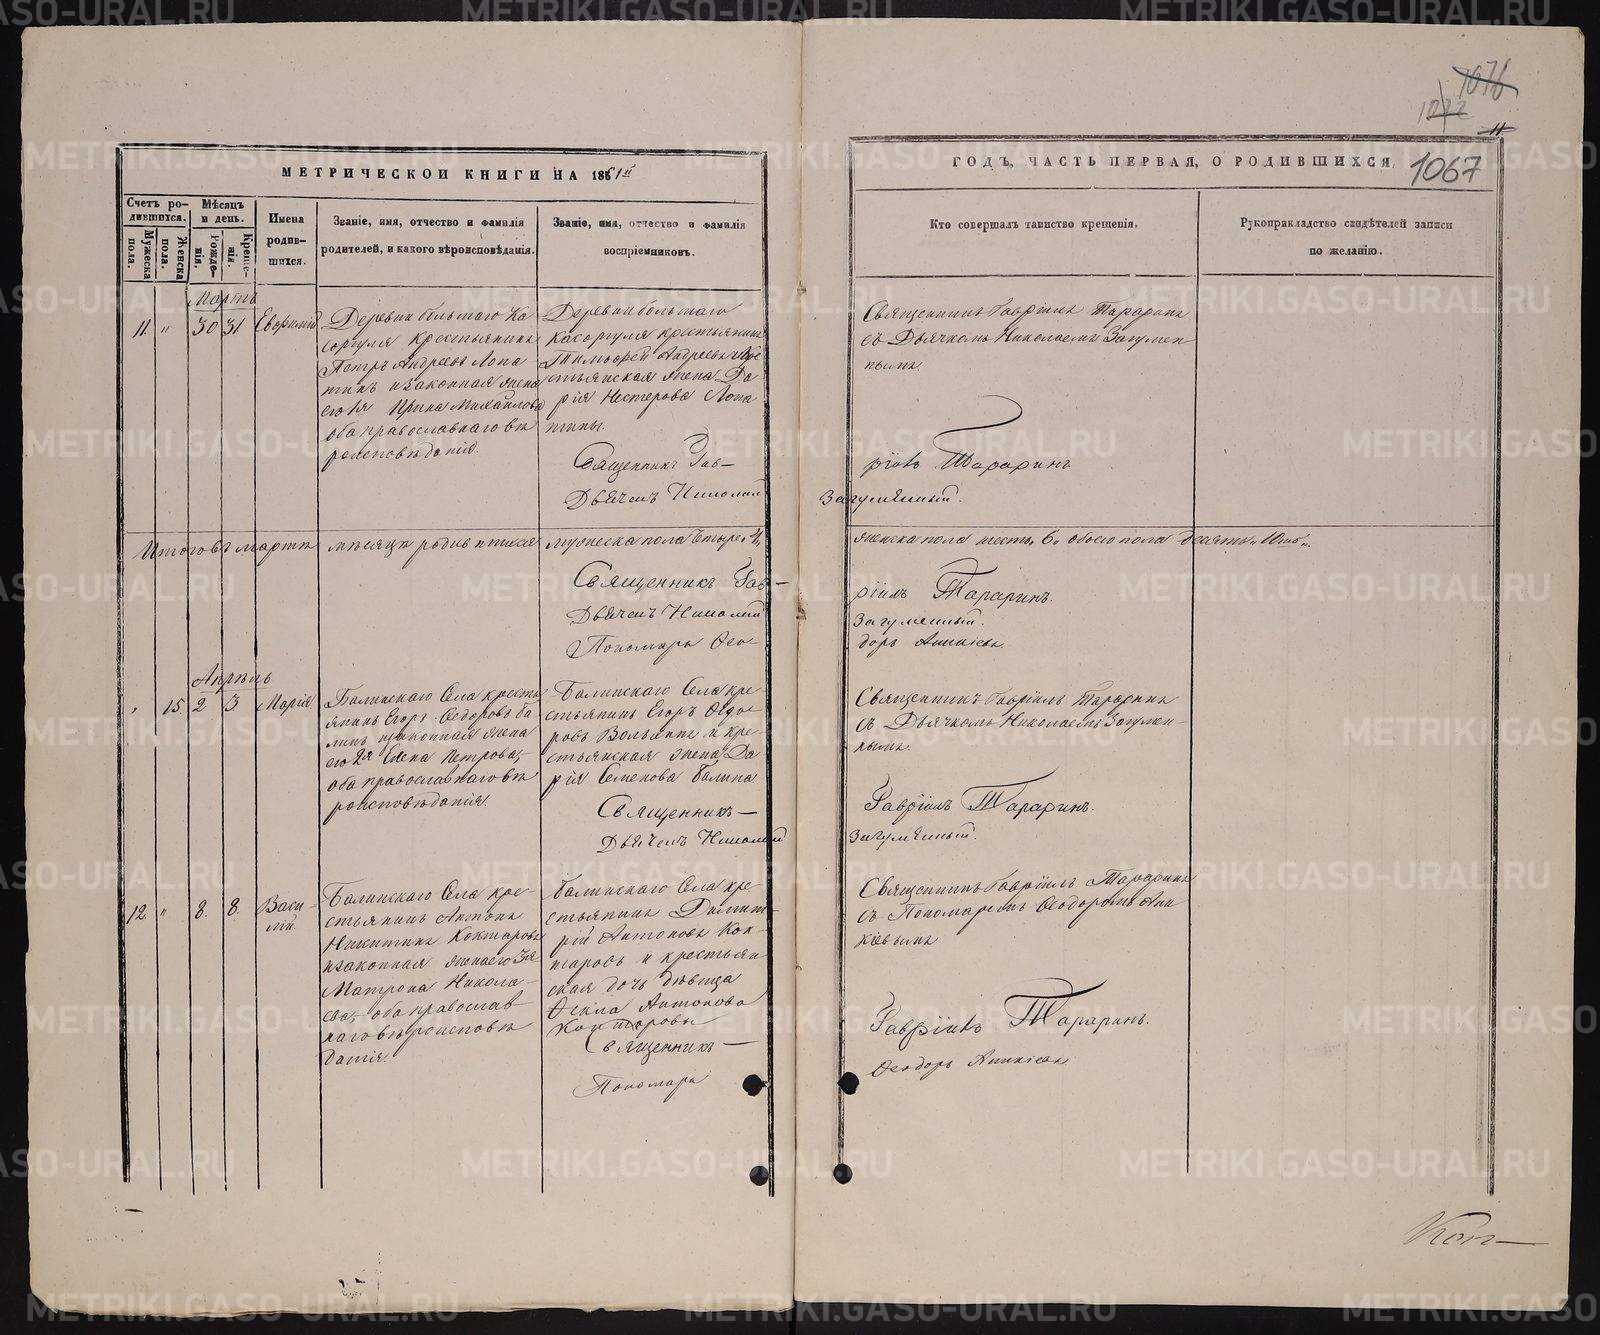 1076
1077
11
1067
МЕТРИЧЕСКОЙ КНИГИ НА 1861й
ГОДЪ, ЧАСТЬ ПЕРВАЯ, О РОДИВШИХСЯ.
Счетъ родившихся.
Мужеска пола.
Женска пола.
Мѣсяцъ и день.
Рожденія.
Крещенія.
Имена родившихся.
Званіе, имя, отчество и фамилія
родителей, и какого вѣроисповѣданія.
Званіе, имя, отчество и фамилія
воспріемниковъ.
Кто совершалъ таинство крещенія.
Рукоприкладство свидѣтелей записи
по желанію.
Мартъ
11. " 30 31
Деревни большаго Ка
саргуля Крестьянинъ
Петръ Андреевъ Лопа
тинъ и законная жена
его 1я Ирина Михайлова
оба православнаго вѣ
роисповѣданія.
Деревни большаго
Касаргуля крестьянинъ
Тимофей Андреевъ и кре
стьянская жена Да
рія Нестерова Лопа
тины.
Священникъ Гав-
Дьячекъ Николай
Священникъ Гавріилъ Тараринъ
съ Дьячкомъ Николаемъ Загумен
нымъ.
ріилъ Тараринъ
Загумённый.
Итого въ мартѣ мѣсяцѣ родившихся мужеска пола четыре 4,
женска пола шесть 6, обоего пола десять 10ть.
Священникъ Гав-
Дьячекъ Николай
Пономарь Ѳео-
ріилъ Тараринъ.
Загуменный.
доръ Аникіевъ
Апрѣль
" 15. 2 3 Марія
Балинскаго Села кресть
янинъ Егоръ Ѳедоровъ Ба
линъ и законная жена
его 2я Елена Петрова,
оба православнаго вѣ
роисповѣданія.
Балинскаго Села кре
стьянинъ Егоръ Ѳедо
ровъ и кре
стьянская жена Да
рія Семенова Балина
Священникъ—
Дьячекъ Николай
Священникъ Гавріилъ Тараринъ
съ Дьячкомъ Николаемъ Загумен-
нымъ.
Гавріилъ Тараринъ.
Загумённый.
12. " 8. 8. Васи-
лій.
Балинскаго Села кре-
стьянинъ Антонъ
Никитинъ Коктаровъ
и законная жена его 3я
Матрона Никола-
ева, оба православ
наго вѣроисповѣ
данія.
Балинскаго Села кре-
стьянинъ Димит-
рій Антоновъ Кок-
таровъ и крестьян-
ская дочь дѣвица
Ѳекла Антонова
Коктаровы
Священникъ—
Пономарь
Священникъ Гавріилъ Тараринъ
съ Пономаремъ Ѳеодоромъ Ани
кіевымъ
Гавріилъ Тараринъ.
Ѳеодоръ Аникіевъ
METRIKI.GASO-URAL.RU